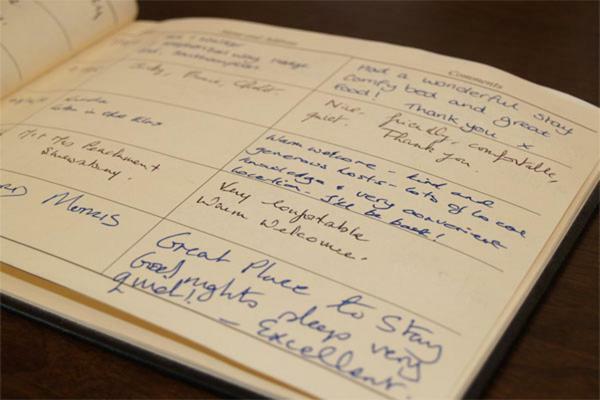 Name and Address
Comments
Southampton
Had a wonderful stay
Comfy bed and great
food! Thank you x
Judy,
Nice, friendly, comfortable,
quiet. Thank you.
Warm welcome - kind and
generous hosts - lots of local
knowledge & very convenient
location. I'll be back!
Mr + Mrs Parchment
Shrewsbury.
Very comfortable
Warm welcome.
Morris
Great Place to Stay
Good nights sleep very
quiet! - Excellent.